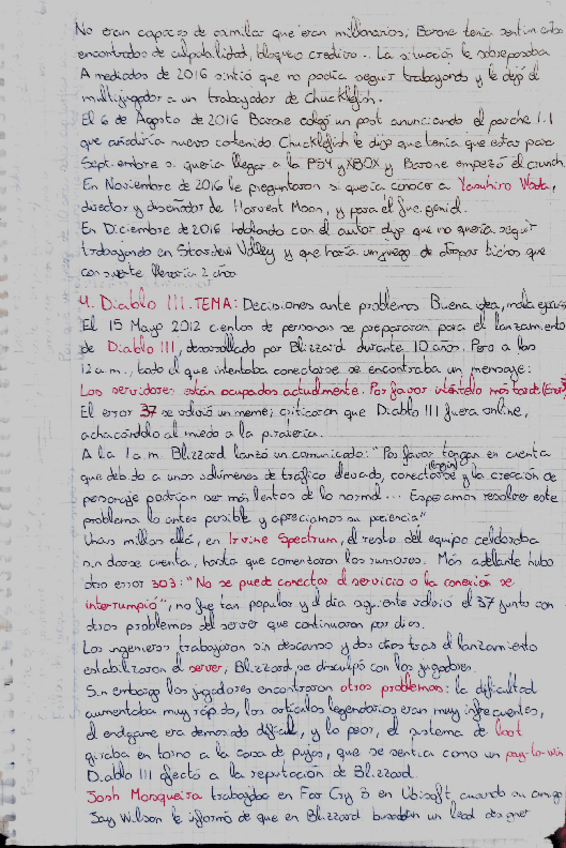 No eran capaces de asimilar que eran millonarios, Barone tenía sentimientos
encontrados de culpabilidad, bloqueo creativo... La situación le sobrepasaba
A mediados de 2016 sintió que no podía seguir trabajando y le dejó el
multijugador a un trabajador de Chucklefish.
El 6 de Agosto de 2016 Barone colgó un post anunciando el parche 1.1
que añadiría nuevo contenido Chucklefish le dijo que tenía que estar para
Septiembre si quería llegar a la PS4 y XBOX y Barone empezó el crunch.
En Noviembre de 2016 le preguntaron si quería conocer a Yasuhiro Wada,
director y diseñador de Harvest Moon, y para él fue genial.
En Diciembre de 2016 hablando con el autor dijo que no quería seguir
trabajando en Stardew Valley y que haría un juego de atrapar bichos que
con suerte llevaría 2 años
4. Diablo III. TEMA: Decisiones ante problemas Buena idea, mala ejecu
El 15 Mayo 2012 cientos de personas se prepararon para el lanzamiento
de Diablo III, desarrollado por Blizzard durante 10 años. Pero a las
12 a.m., todo el que intentaba conectarse se encontraba un mensaje:
Los servidores están ocupados actualmente. Por favor inténtelo más tarde. (Error
El error 37 se volvió un meme; criticaron que Diablo III fuera online,
achacándolo al miedo a la piratería.
A la 1 a.m. Blizzard lanzó un comunicado: "Por favor tengan en cuenta
que debido a unos volúmenes de tráfico elevado, conectarse (login) y la creación de
personaje podrían ser más lentos de lo normal... Esperamos resolver este
problema lo antes posible y apreciamos su paciencia"
Unas millas allá, en Irvine Spectrum, el resto del equipo celebraba
sin darse cuenta, hasta que comenzaron los rumores. Más adelante hubo
otro error 303: "No se puede conectar al servicio o la conexión se
interrumpió", no fue tan popular y al día siguiente volvió el 37 junto con
otros problemas del server que continuaron por días.
Los ingenieros trabajaron sin descanso y dos días tras el lanzamiento
estabilizaron el server, Blizzard se disculpó con los jugadores.
Sin embargo los jugadores encontraron otros problemas: la dificultad
aumentaba muy rápido, los artículos legendarios eran muy infrecuentes,
el endgame era demasiado difícil, y lo peor, el sistema de loot
giraba en torno a la casa de pujas, que se sentía como un pay-to-win
Diablo III afectó a la reputación de Blizzard.
Josh Mosqueira trabajaba en Far Cry 3 en Ubisoft cuando su amigo
Jay Wilson le informó de que en Blizzard buscaban un lead designer